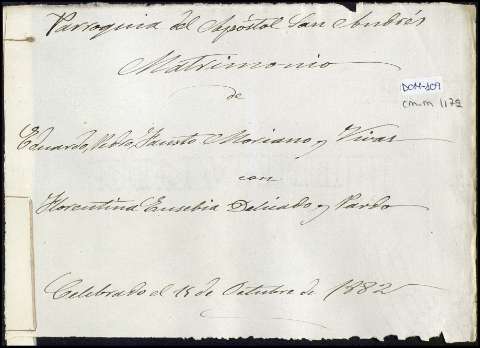 Parroquia del Apóstol San Andrés
Matrimonio
DOM-109
de
cm.m 1172
Eduardo, Pablo, Fausto Moriano y Vivas
con
Florentina Eusebia Delicado y Pardo
Celebrado el 18 de Octubre de 1882